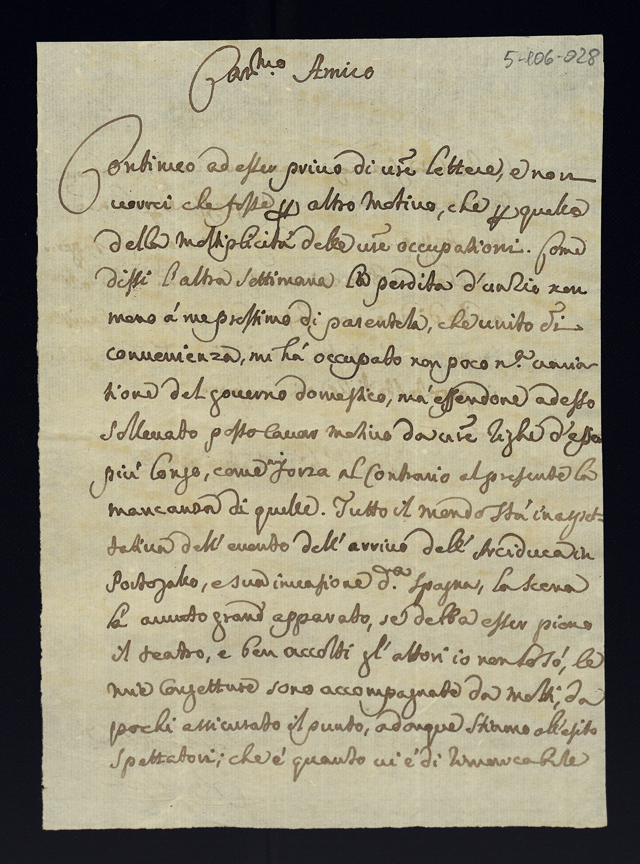 5-106-028
Carmo. Amico
Continuo ad esser privo di vre lettere, e non
vorrei che fosse p altro motivo, che p quello
della moltiplicità delle vre occupationi. Come
dissi l'altra settimana la perdita d'un Zio non
meno à me prossimo di parentela, che unito di
convenienza, mi hà occupato non poco
tione del governo domestico, mà essendone adesso
sollevato posso cavar motivo da vre righe d'esser
più longo, come forza al Contrario al presente la
mancanza di quelle. Tutto il mondo stà in aspet-
tativa dell' evento dell' arrivo dell' Arciduca in
Portogallo, e sua invasione di Spagna, la scena
hà avuto grand' apparato, se debba esser pieno
il teatro, e ben accolti gl' attori io non lo sò, le
mie Congetture sono accompagnate da molti, da
pochi assicurato il punto, adonque stiamo all' esito
Spettatori; che è quanto vi è di rimarcabile